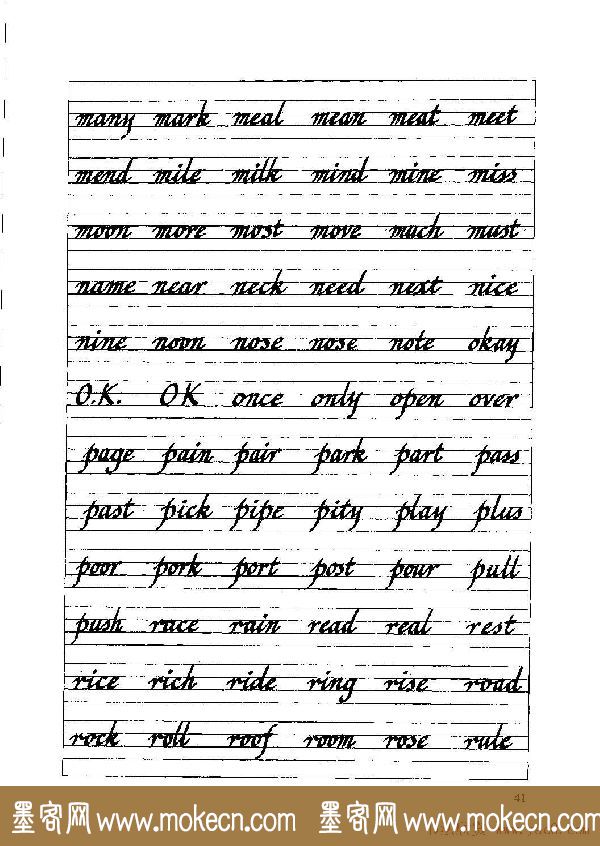 many mark meal mean meat meet
mend mile milk mind mine miss
moon more most move much must
name near neck need next nice
nine noon nose nose note okay
O.K. OK once only open over
page pain pair park part pass
past pick pipe pity play plus
poor pork port post pour pull
push race rain read real rest
rice rich ride ring rise road
rock roll roof room rose rule
41
墨客网 www.mokecn.com 墨客网 www.mokecn.com